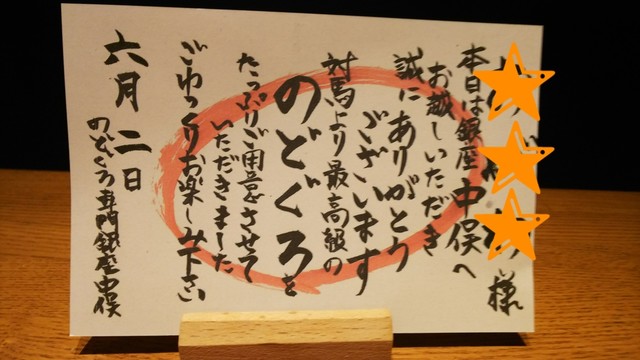 様
本日は銀座中俣へ
お越しいただき
誠にありがとう
ございます
対馬より最高級の
のどぐろを
たっぷりご用意させて
いただきました
ごゆっくりお楽しみ下さい
六月二日
のどぐろ専門銀座中俣